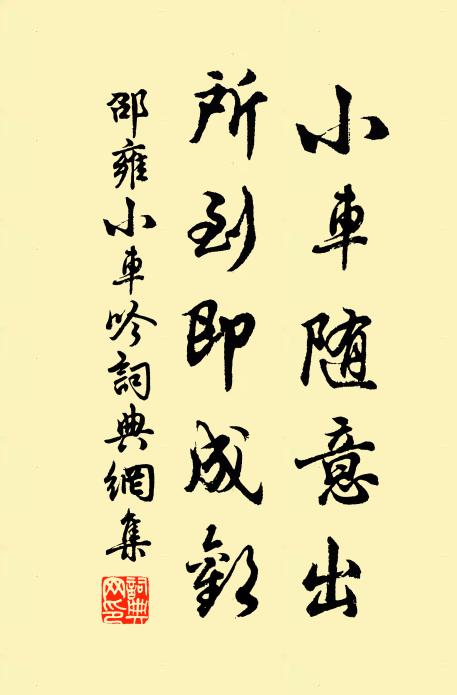 小車随意出
所到即成歡
邵雍小車吟詞典網集
詞典
网印